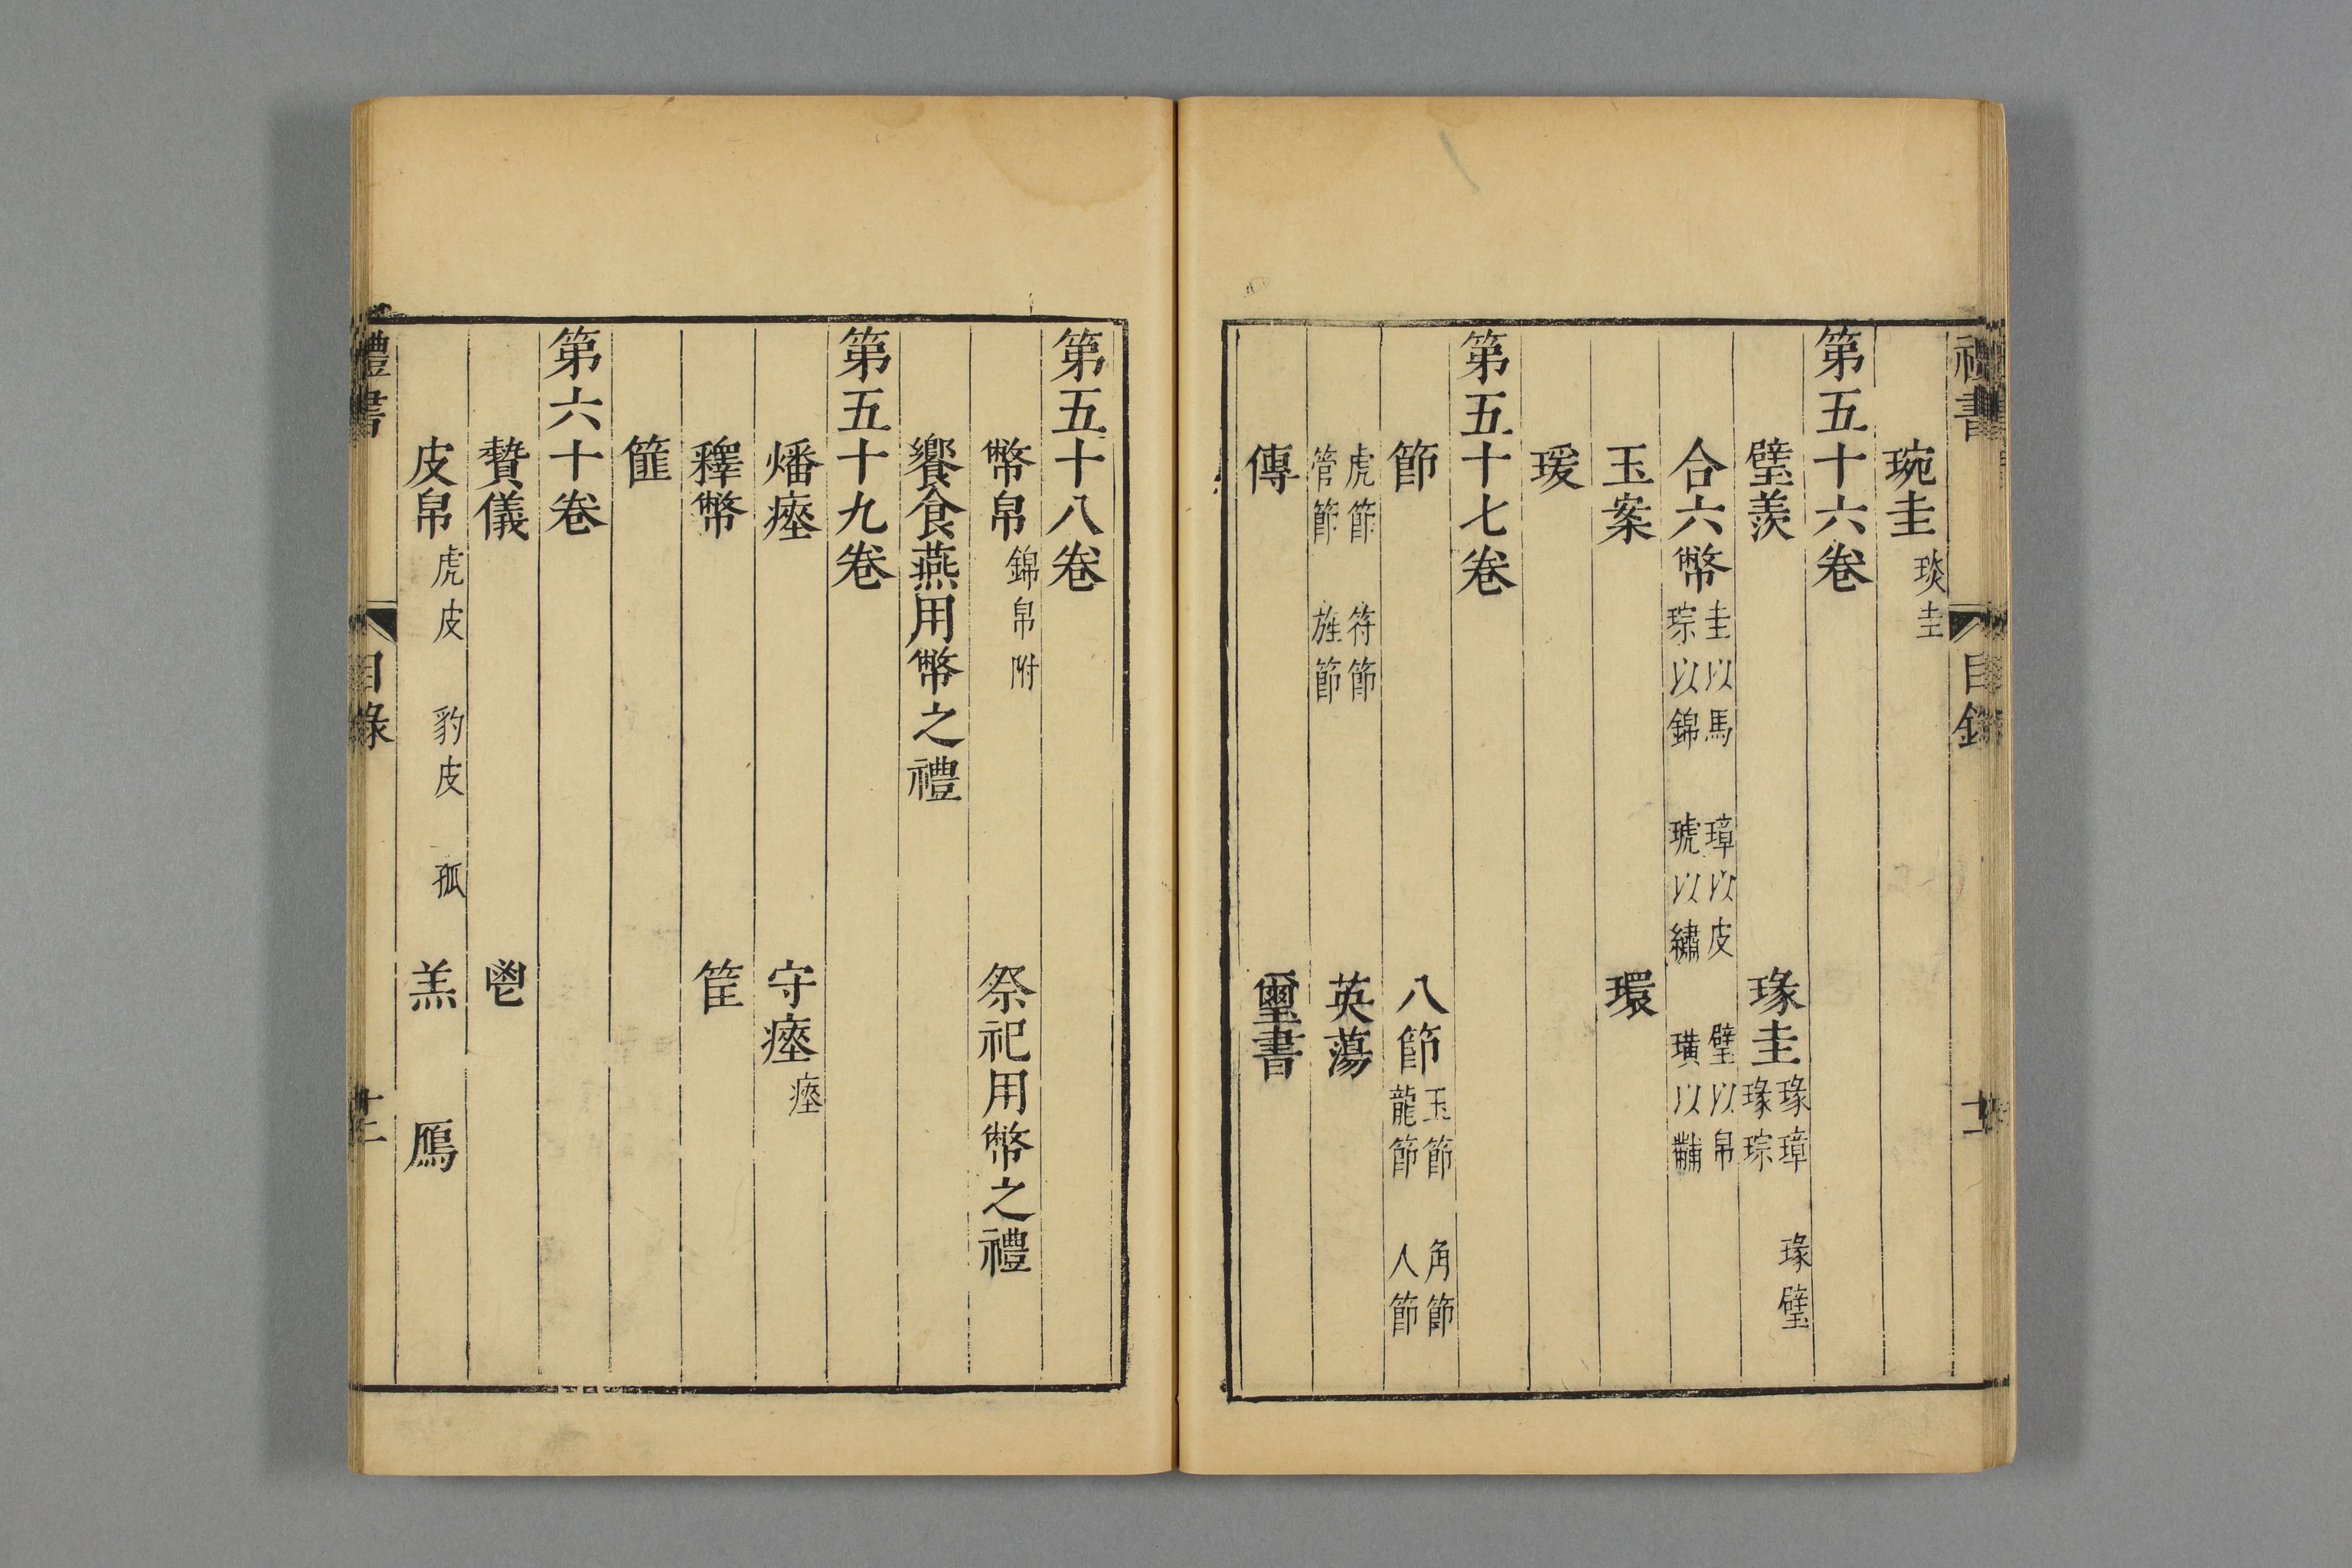 禮書
目錄
琬圭 琰圭
第五十六卷
璧羨 瑑圭 瑑璋 瑑璧 瑑琮
合六幣 圭以馬 璋以皮 璧以帛 琮以錦 琥以繡 璜以黼
玉案 環
瑗
第五十七卷
節 八節 玉節 角節 龍節 人節
虎節 符節 管節 旌節 英蕩
傳 璽書
第五十八卷
幣帛 錦帛附 祭祀用幣之禮
饗食燕用幣之禮
第五十九卷
燔瘞 守瘞 瘞
釋幣 筐
篚
第六十卷
贄儀 鬯
皮帛 虎皮 豹皮 孤 羔 鴈
禮書
目錄
十二